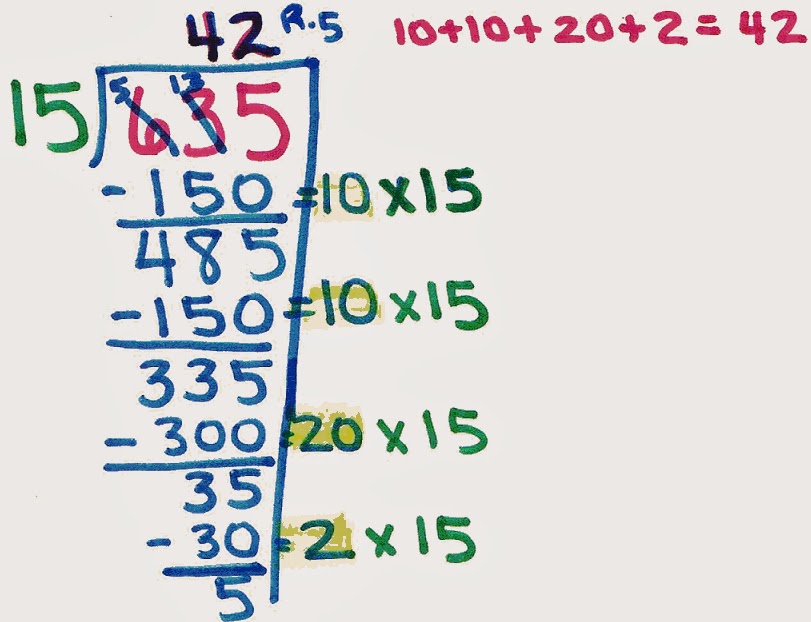 42 R.5 10+10+20+2=42
5 13
15 635
-150 =10 x15
485
-150 =10 x15
335
-300 =20 x 15
35
-30 =2 x 15
5